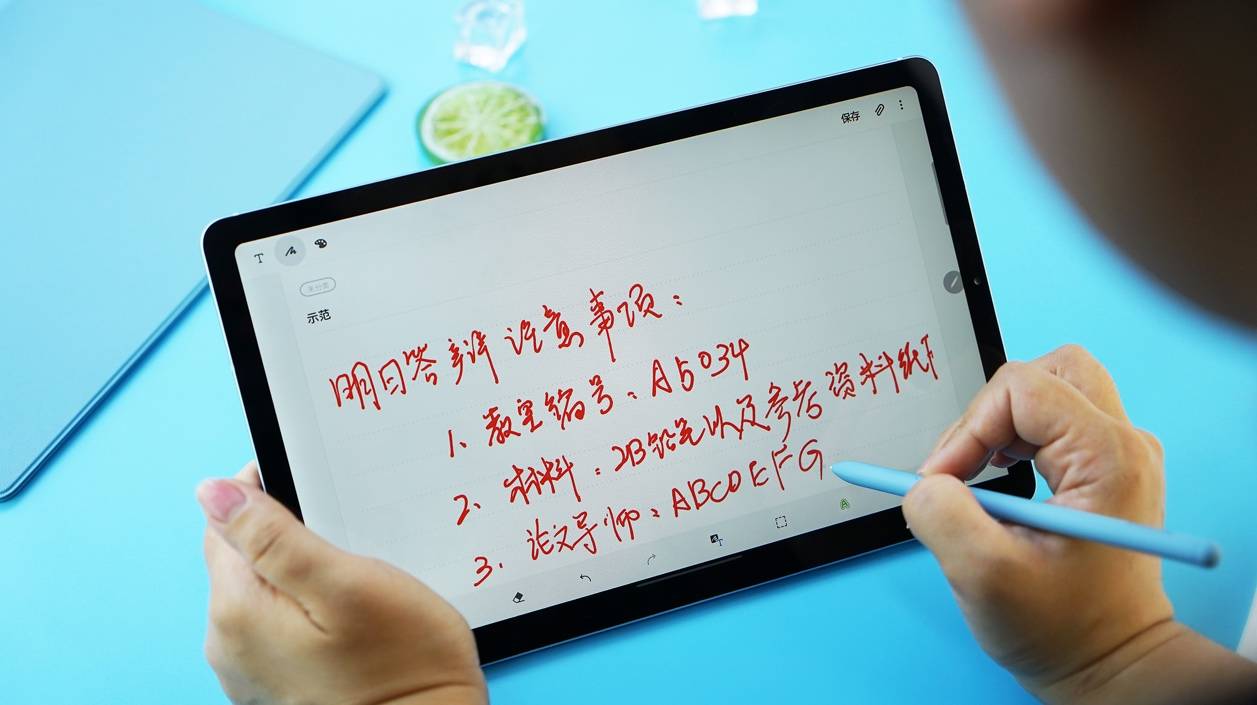 保存
T
未分类
示范
明日答辩注意事项：
1、教室编号：A5034
2、材料：2B铅笔以及参考资料纸
3、论文导师：ABCDEFG